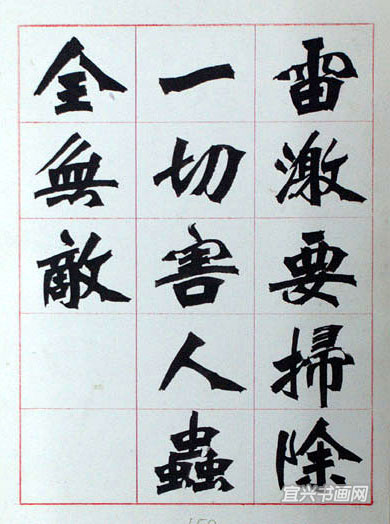 雷激要掃除
一切害人蟲
全無敵
宜兴书画网